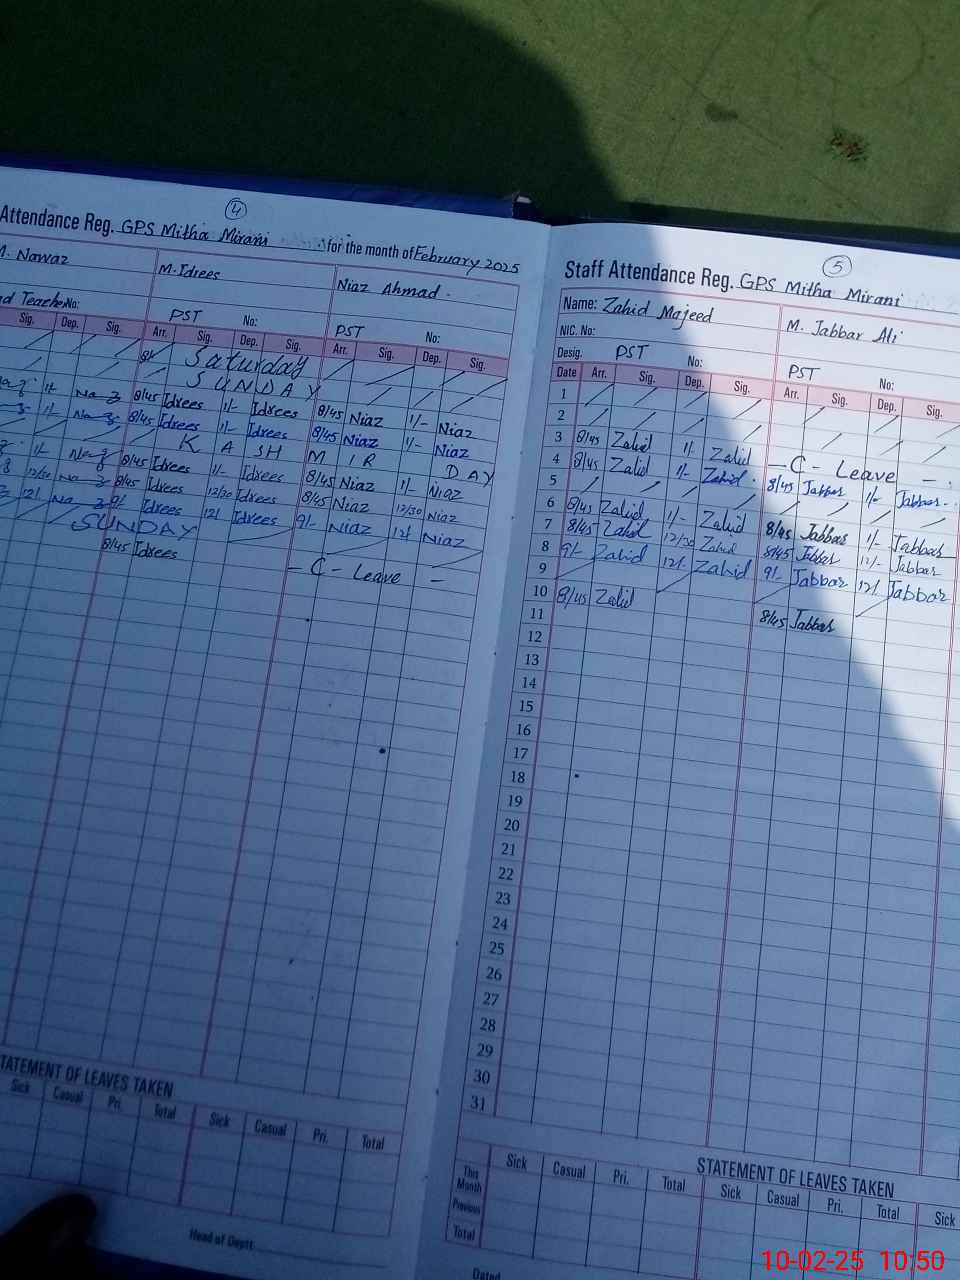 4
Attendance Reg. GPS Mitha Mirani for the month of February 2025
M. Nawaz M. Idrees Niaz Ahmad.
No: PST No: PST No:
Sig. Dep. Sig. Arr. Sig. Dep. Sig. Arr. Sig. Dep. Sig.
Saturday
SUNDAY
1/- Naz 8/45 Idrees 1/- Idrees 8/45 Niaz 1/- Niaz
1/- Naz 8/45 Idrees 1/- Idrees 8/45 Niaz 1/- Niaz
KASHMIR DAY
1/- Naz 8/45 Idrees 1/- Idrees 8/45 Niaz 1/- Niaz
12/30 Naz 8/45 Idrees 12/30 Idrees 8/45 Niaz 12/30 Niaz
12/- Naz 9/- Idrees 12/- Idrees 9/- Niaz 12/- Niaz
SUNDAY
8/45 Idrees - C - Leave -
STATEMENT OF LEAVES TAKEN
Sick Casual Pri. Total Sick Casual Pri. Total
Head of Deptt:
5
Staff Attendance Reg. GPS Mitha Mirani
Name: Zahid Majeed M. Jabbar Ali
NIC. No:
Desig. PST No: PST No:
Date Arr. Sig. Dep. Sig. Arr. Sig. Dep. Sig.
1
2
3 8/45 Zahid 1/- Zahid - C - Leave -
4 8/45 Zahid 1/- Zahid 8/45 Jabbar 1/- Jabbar
5
6 8/45 Zahid 1/- Zahid 8/45 Jabbar 1/- Jabbar
7 8/45 Zahid 12/30 Zahid 8/45 Jabbar 12/- Jabbar
8 9/- Zahid 12/- Zahid 9/- Jabbar 12/- Jabbar
9
10 8/45 Zahid 8/45 Jabbar
11
12
13
14
15
16
17
18
19
20
21
22
23
24
25
26
27
28
29
30
31
STATEMENT OF LEAVES TAKEN
Sick Casual Pri. Total Sick Casual Pri. Total Sick
This Month
Previous
Total
Dated
10-02-25 10:50